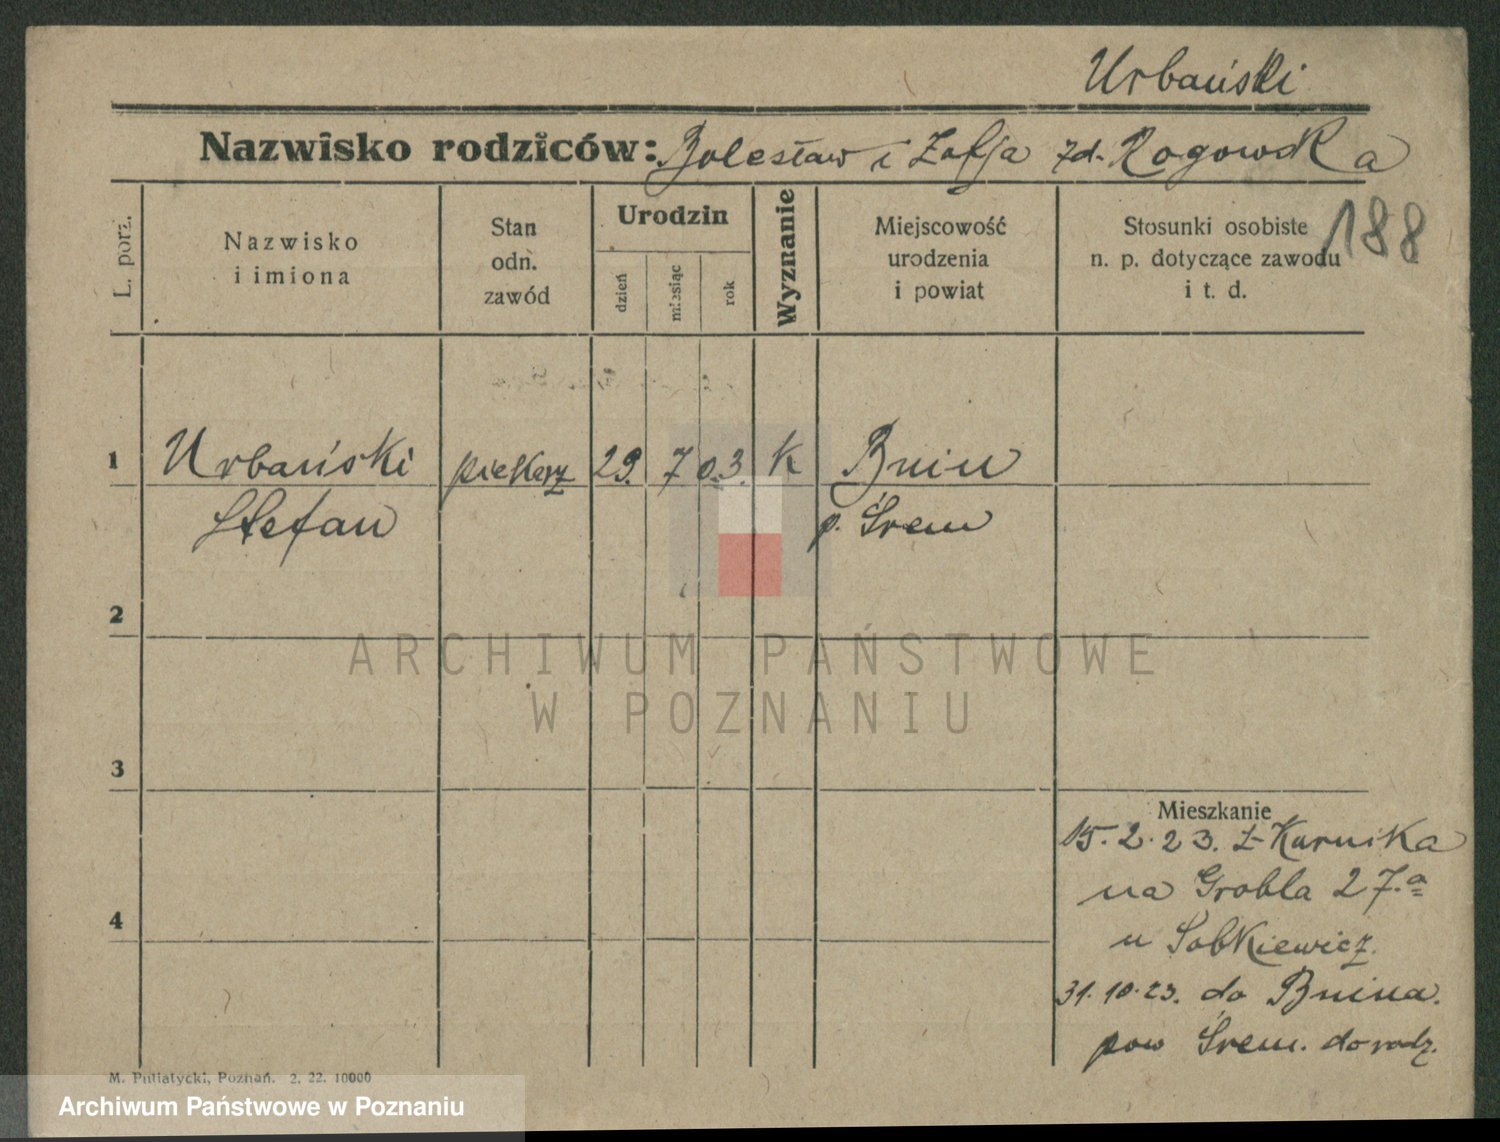 Urbański
Nazwisko rodziców: Bolesław i Zofja zd. Rogowska
188
L. porz.
Nazwisko
i imiona
Stan
odn.
zawód
Urodzin
dzień
miesiąc
rok
Wyznanie
Miejscowość
urodzenia
i powiat
Stosunki osobiste
n. p. dotyczące zawodu
i t. d.
1 Urbański piekarz 29. 7 03. K Bnin
Stefan p. Śrem
2
ARCHIWUM PAŃSTWOWE
W POZNANIU
3
Mieszkanie
15. 2. 23. z Kurnika
na Grobla 27.a
4
u Sobkiewicz.
31. 10. 23. do Bnina.
pow Śrem. do rodz.
M. Putiatycki, Poznań. 2. 22. 10000
Archiwum Państwowe w Poznaniu